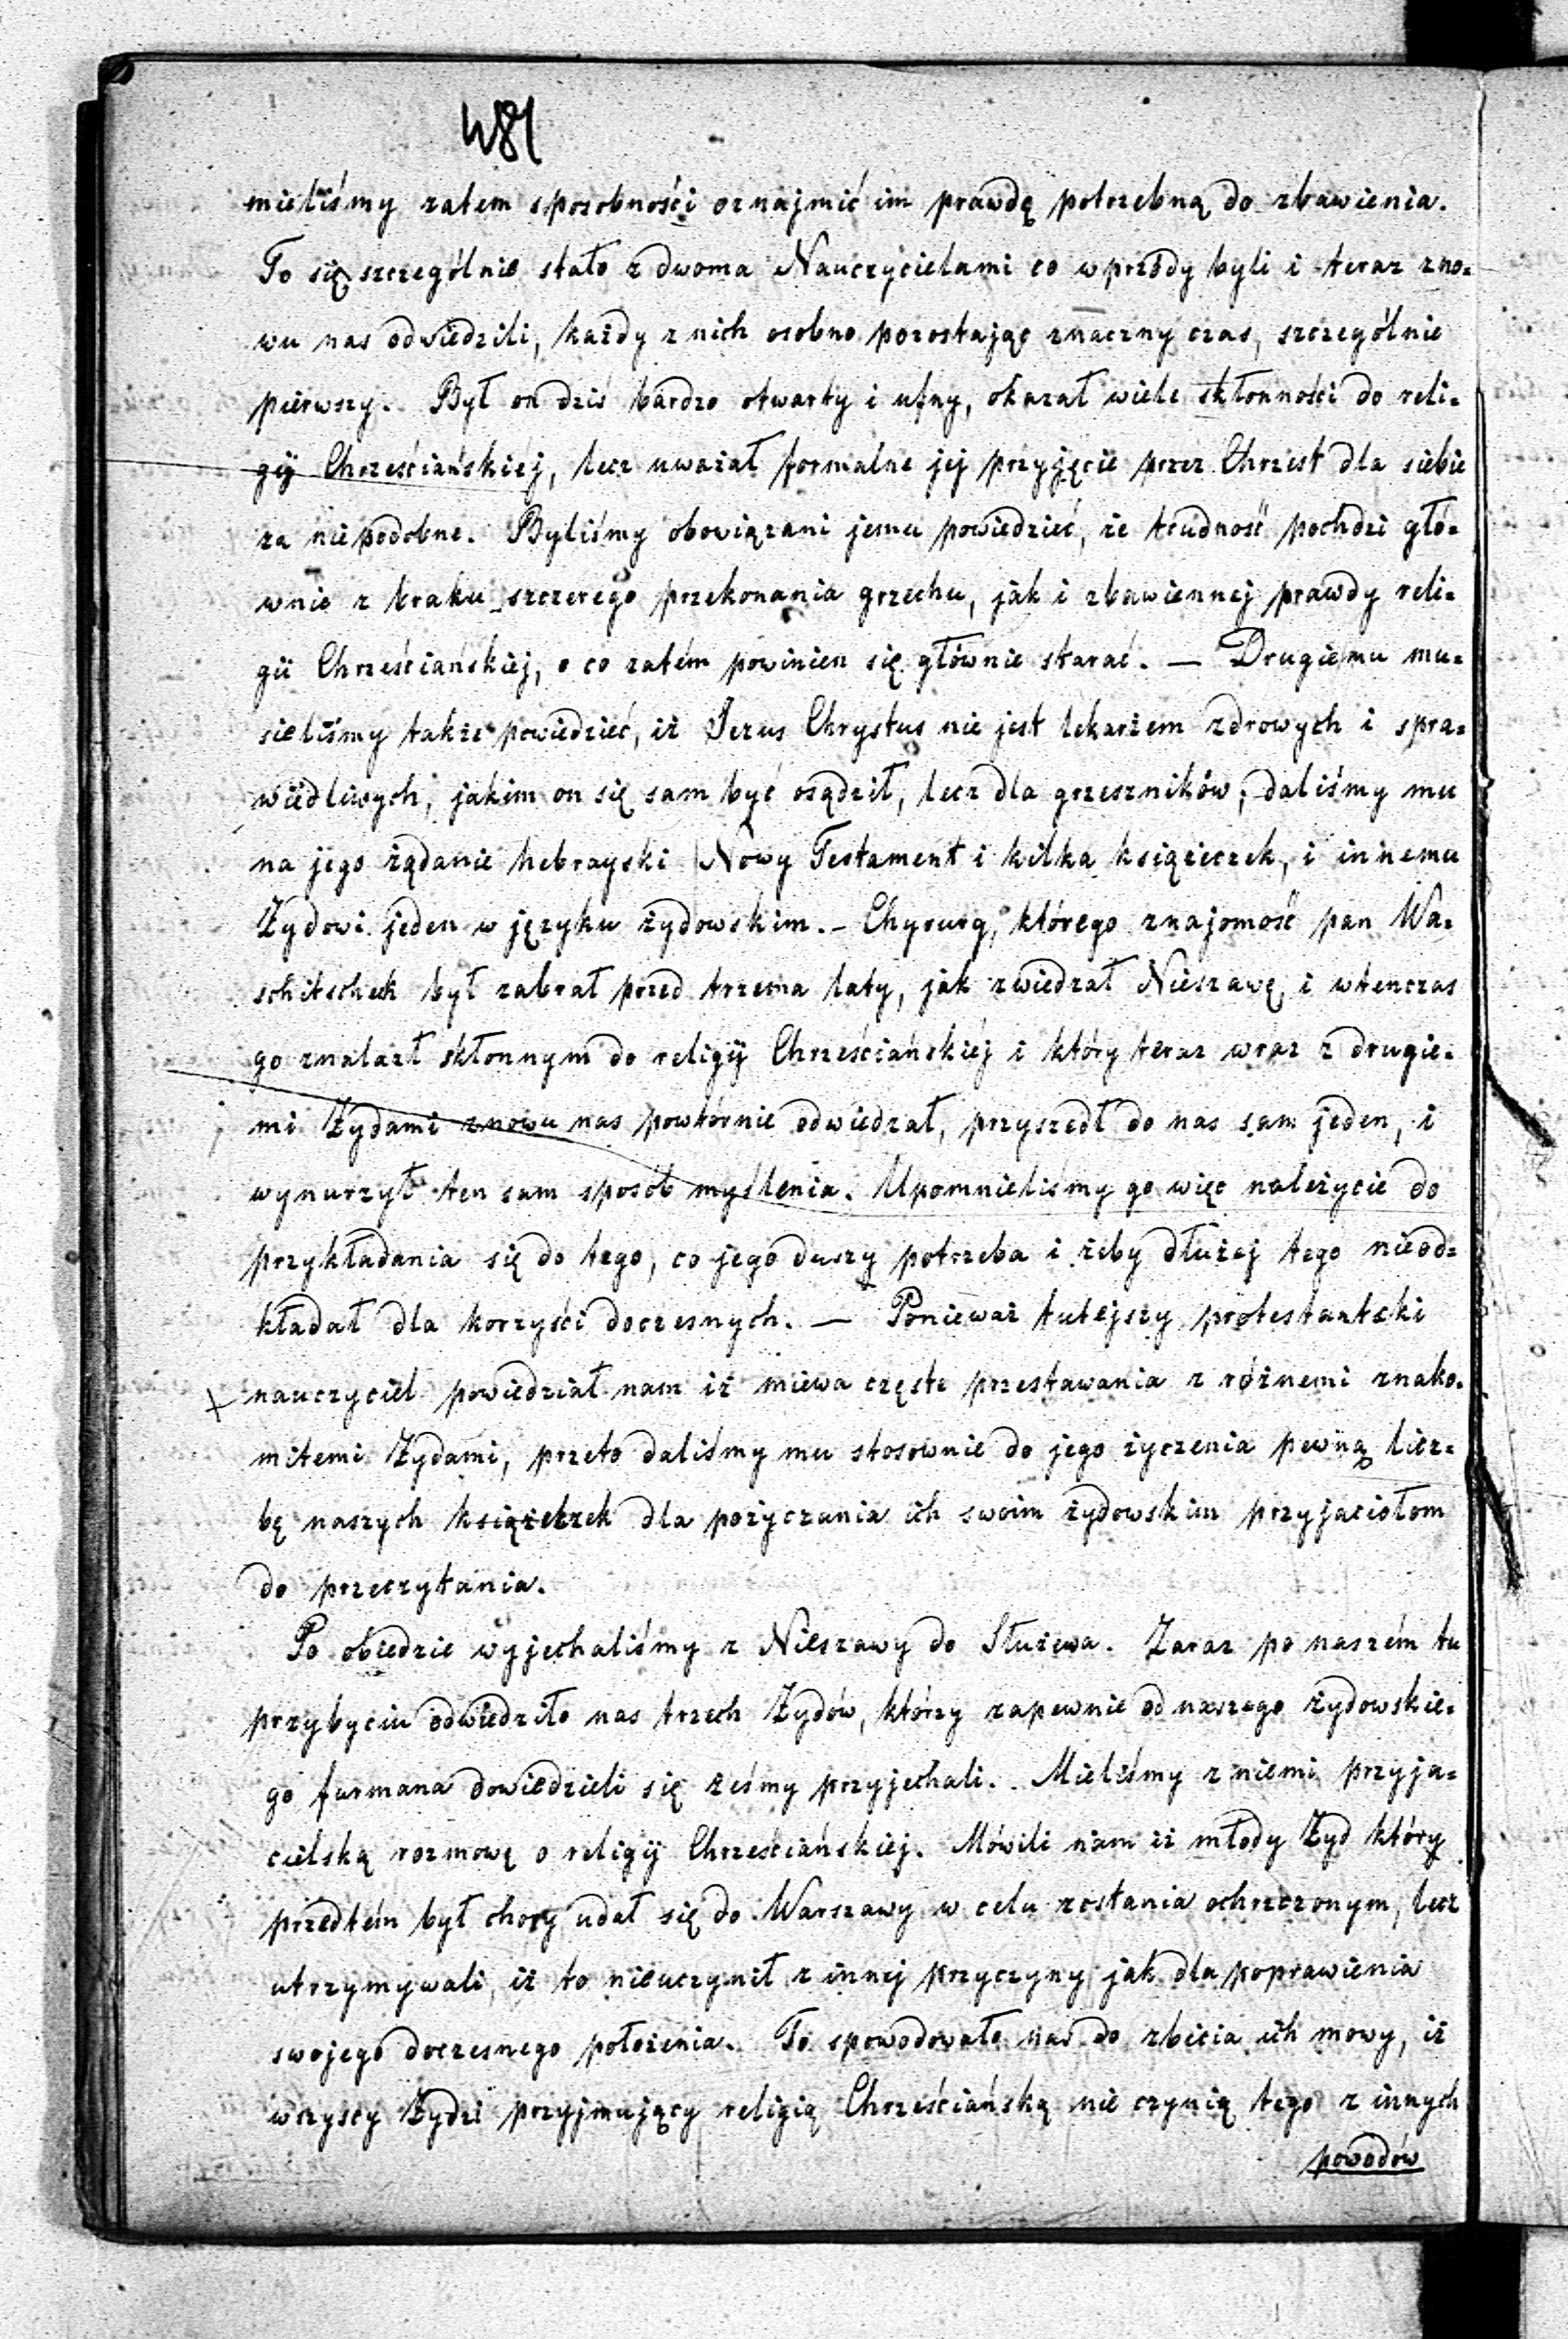 481
mieliśmy zatem sposobności oznajmić im prawdę potrzebną do zbawienia.
To się szczególnie stało z dwoma Nauczycielami co wprzódy byli i teraz zno-
wu nas odwiedzili, każdy z nich osobno pozostając znaczny czas, szczególnie
pierwszy. Był on dziś bardzo otwarty i ufny, okazał wiele skłonności do reli-
gij Chrześciańskiej, lecz uważał formalne jej przyjęcie przez Chrzest dla siebie
za niepodobne. Byliśmy obowiązani jemu powiedzieć, że trudność pochdzi głó-
wnie z braku szczerego przekonania grzechu, jak i zbawiennej prawdy reli-
gii Chrześciańskiej, o co zatém powinien się głównie starać. — Drugiemu mu-
sieliśmy także powiedzieć, iż Jezus Chrystus nie jest lekarzem zdrowych i spra-
wiedliwych, jakim on się sam być osądził, lecz dla grzeszników; daliśmy mu
na jego żądanie hebrayski Nowy Testament i kilka książeczek, i innemu
Żydowi jeden w języku żydowskim. – Chyrurg, którego znajomość pan Wa-
schitscheck był zabrał przed trzema laty, jak zwiedzał Nieszawę, i wtenczas
go znalazł skłonnym do religij Chrześciańskiéj i który teraz wraz z drugie-
mi Żydami znowu nas powtórnie odwiedzał, przyszedł do nas sam jeden, i
wynurzył ten sam sposób myślenia. Upomnieliśmy go więc należycie do
przykładania się do tego, co jego duszy potrzeba i żeby dłużej tego nieod-
kładał dla korzyści doczesnych. — Ponieważ tutejszy protestantski
nauczyciel powiedział nam iż miewa częste przestawania z różnemi znako-
mitemi Żydami, przeto daliśmy mu stosownie do jego życzenia pewną licz-
bę naszych książeczek dla pożyczania ich swoim żydowskim przyjaciołom
do przeczytania.
Po obiedzie wyjechaliśmy z Nieszawy do Służewa. Zaraz po naszém tu
przybyciu odwiedziło nas trzech Żydów, którzy zapewnie od naszego żydowskie-
go furmana dowiedzieli się żeśmy przyjechali. Mieliśmy z niemi przyja-
cielską rozmowę o religij Chrześciańskiej. Mówili nam iż młody Żyd który
przedtém był chory udał się do Warszawy w celu zostania ochrzczonym, lecz
utrzymywali, iż to nieuczynił z innej przyczyny jak dla poprawienia
swojego doczesnego położenia. To spowodowało nas do zbicia ich mowy, iż
wszyscy Żydzi przyjmujący religią Chrześciańską nie czynią tego z innych
powodów